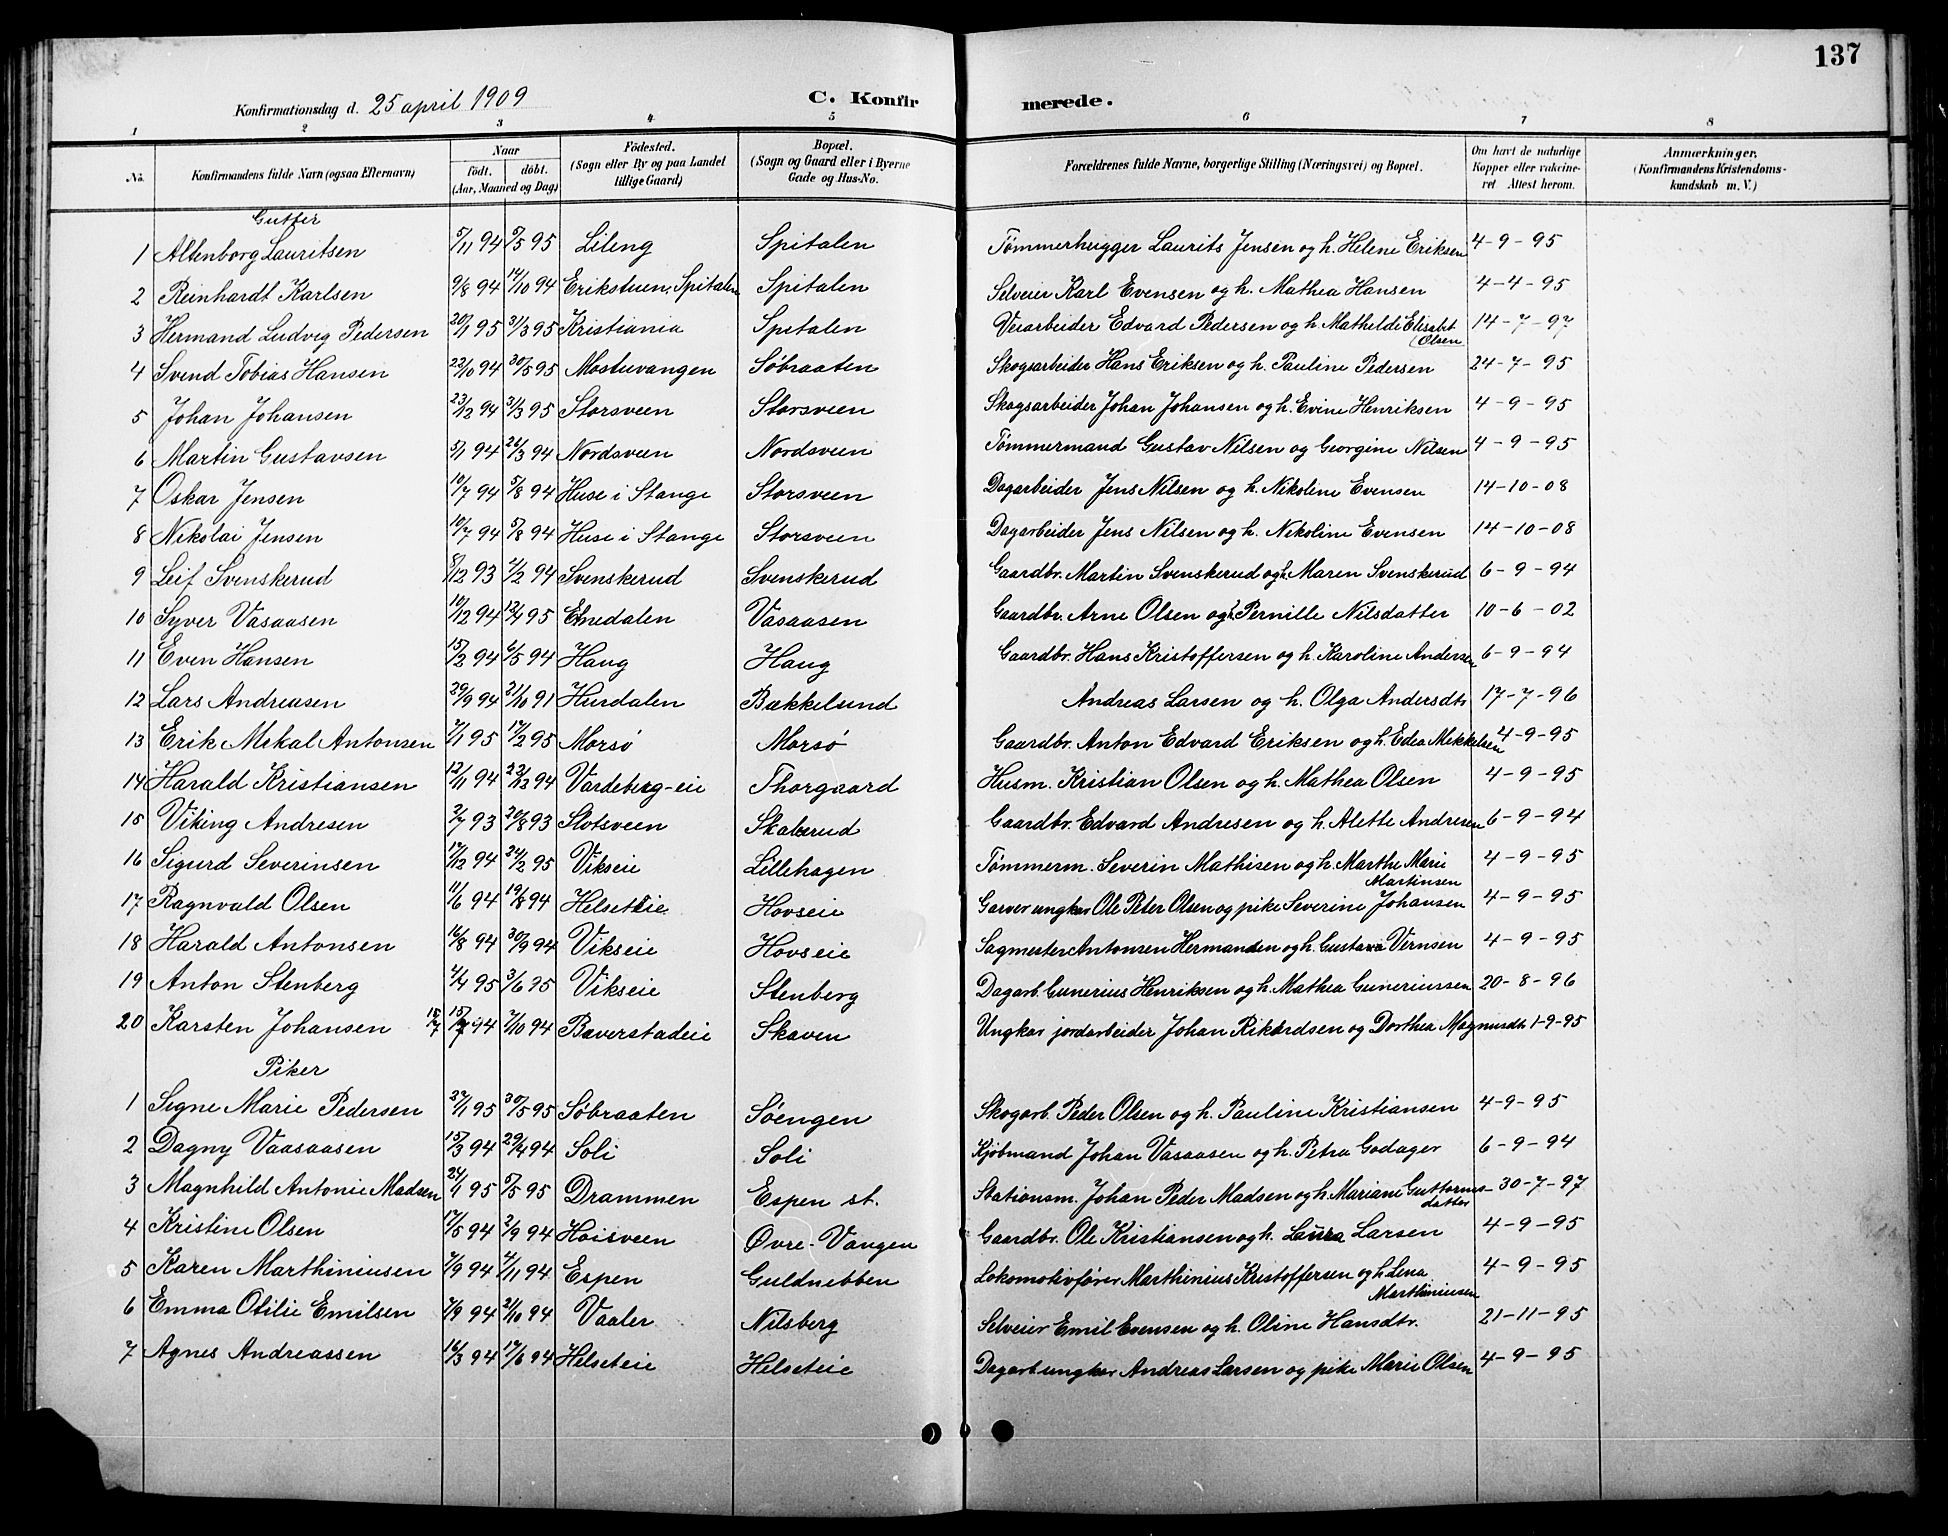 137
Konfirmationsdag d. 25 april 1909
C. Konfir merede.
1 2 3 4 5 6 7 8
No. Konfirmandens fulde Navn (ogsaa Efternavn) Naar födt. döbt. (Aar, Maaned og Dag) Födested. (Sogn eller By og paa Landet tillige Gaard) Bopæl. (Sogn og Gaard eller i Byerne Gade og Hus-No. Forældrenes fulde Navne, borgerlige Stilling (Næringsvei) og Bopæl. Om havt de naturlige Kopper eller vakcineret Attest herom. Anmærkninger. (Konfirmandens Kristendomskundskab m. V.)
Gutter
1 Altenborg Lauritsen 5/11 94 5/5 95 Lileng Spitalen Tømmerhugger Laurits Jensen og h. Helene Eriksen 4-9-95
2 Reinhardt Karlsen 9/8 94 14/10 94 Erikstuen, Spitalen Spitalen Selveier Karl Evensen og h. Mathea Hansen 4-4-95
3 Hermand Ludvig Pedersen 20/1 95 31/3 95 Kristiania Spitalen Veiarbeider Edvard Pedersen og h. Mathilde Elisabet Olsen 14-7-97
4 Svend Tobias Hansen 22/10 94 30/5 95 Mostuvangen Søbraaten Skogsarbeider Hans Eriksen og h. Pauline Pedersen 24-7-95
5 Johan Johansen 23/12 94 31/3 95 Storsveen Storsveen Skogsarbeider Johan Johansen og h. Evine Henriksen 4-9-95
6 Martin Gustavsen 5/1 94 26/3 94 Nordsveen Nordsveen Tømmermand Gustav Nilsen og Georgine Nilsen 4-9-95
7 Oskar Jensen 10/7 94 5/8 94 Huse i Stange Storsveen Dagarbeider Jens Nilsen og h. Nikoline Evensen 14-10-08
8 Nikolai Jensen 10/7 94 5/8 94 Huse i Stange Storsveen Dagarbeider Jens Nilsen og h. Nikoline Evensen 14-10-08
9 Leif Svenskerud 8/12 93 4/2 94 Svenskerud Svenskerud Gaardbr. Martin Svenskerud og h. Maren Svenskerud 6-9-94
10 Syver Vasaasen 10/12 94 12/4 95 Etnedalen Vasaasen Gaardbr. Arne Olsen og h. Pernille Nilsdatter 10-6-02
11 Even Hansen 15/2 94 6/5 94 Haug Haug Gaardbr. Hans Kristoffersen og h. Karoline Andersen 6-9-94
12 Lars Andreasen 29/9 94 21/10 91 Hurdalen Bækkelund Andreas Larsen og h. Olga Andersdtr 17-7-96
13 Erik Mikal Antonsen 7/1 95 17/2 95 Morsø Morsø Gaardbr. Anton Edvard Eriksen og h. Edea Mikkelsen 4-9-95
14 Harald Kristiansen 12/11 94 23/12 94 Vardeberg-eie Thorgaard Husm. Kristian Olsen og h. Mathea Olsen 4-9-95
15 Viking Andresen 2/7 93 20/8 93 Slotsveen Skaberud Gaardbr. Edvard Andresen og h. Alette Andresen 6-9-94
16 Sigurd Severinsen 17/12 94 24/2 95 Vikseie Lillehagen Tømmerm. Severin Mathisen og h. Marthe Marie Martinsen 4-9-95
17 Ragnvald Olsen 11/6 94 19/8 94 Helseteie Hovseie Garver ungkar Ole Peter Olsen og pike Severine Johansen 4-9-95
18 Harald Antonsen 16/8 94 30/9 94 Vikseie Hovseie Sagmester Antonsen Hermansen og h. Gustava Vernsen 4-9-95
19 Anton Stenberg 4/4 95 3/6 95 Vikseie Stenberg Dagarb. Gunerius Henriksen og h. Mathea Guneriussen 20-8-96
20 Karsten Johansen 15/7 94 7/10 94 Baverstadeie Skaven Ungkar jordarbeider Johan Rikardsen og Dorthea Magnusdtr 1-9-95
Piker
1 Signe Marie Pedersen 27/1 95 30/5 95 Søbraaten Søengen Skogarb. Peder Olsen og h. Pauline Kristiansen 4-9-95
2 Dagny Vaasaasen 15/3 94 29/4 94 Soli Soli Kjøbmand Johan Vasaasen og h. Petra Godager 6-9-94
3 Magnhild Antonie Madsen 24/1 95 5/5 95 Drammen Espen st. Stationsm. Johan Peder Madsen og h. Mariane Guttormsdatter 30-7-97
4 Kristine Olsen 17/6 94 2/9 94 Hoisveen Øvre-Vangen Gaardbr. Ole Kristiansen og h. Laura Larsen 4-9-95
5 Karen Marthiniusen 7/9 94 4/11 94 Espen Guldnebben Lokomotivfører Marthinius Kristoffersen og h. Lena Marthiniusen 4-9-95
6 Emma Otilie Emilsen 7/9 94 21/10 94 Vaaler Nilsberg Selveier Emil Evensen og h. Oline Hansdtr. 21-11-95
7 Agnes Andreassen 16/3 94 17/6 94 Helseteie Helseteie Dagarb ungkar Andreas Larsen og pike Marie Olsen 4-9-95